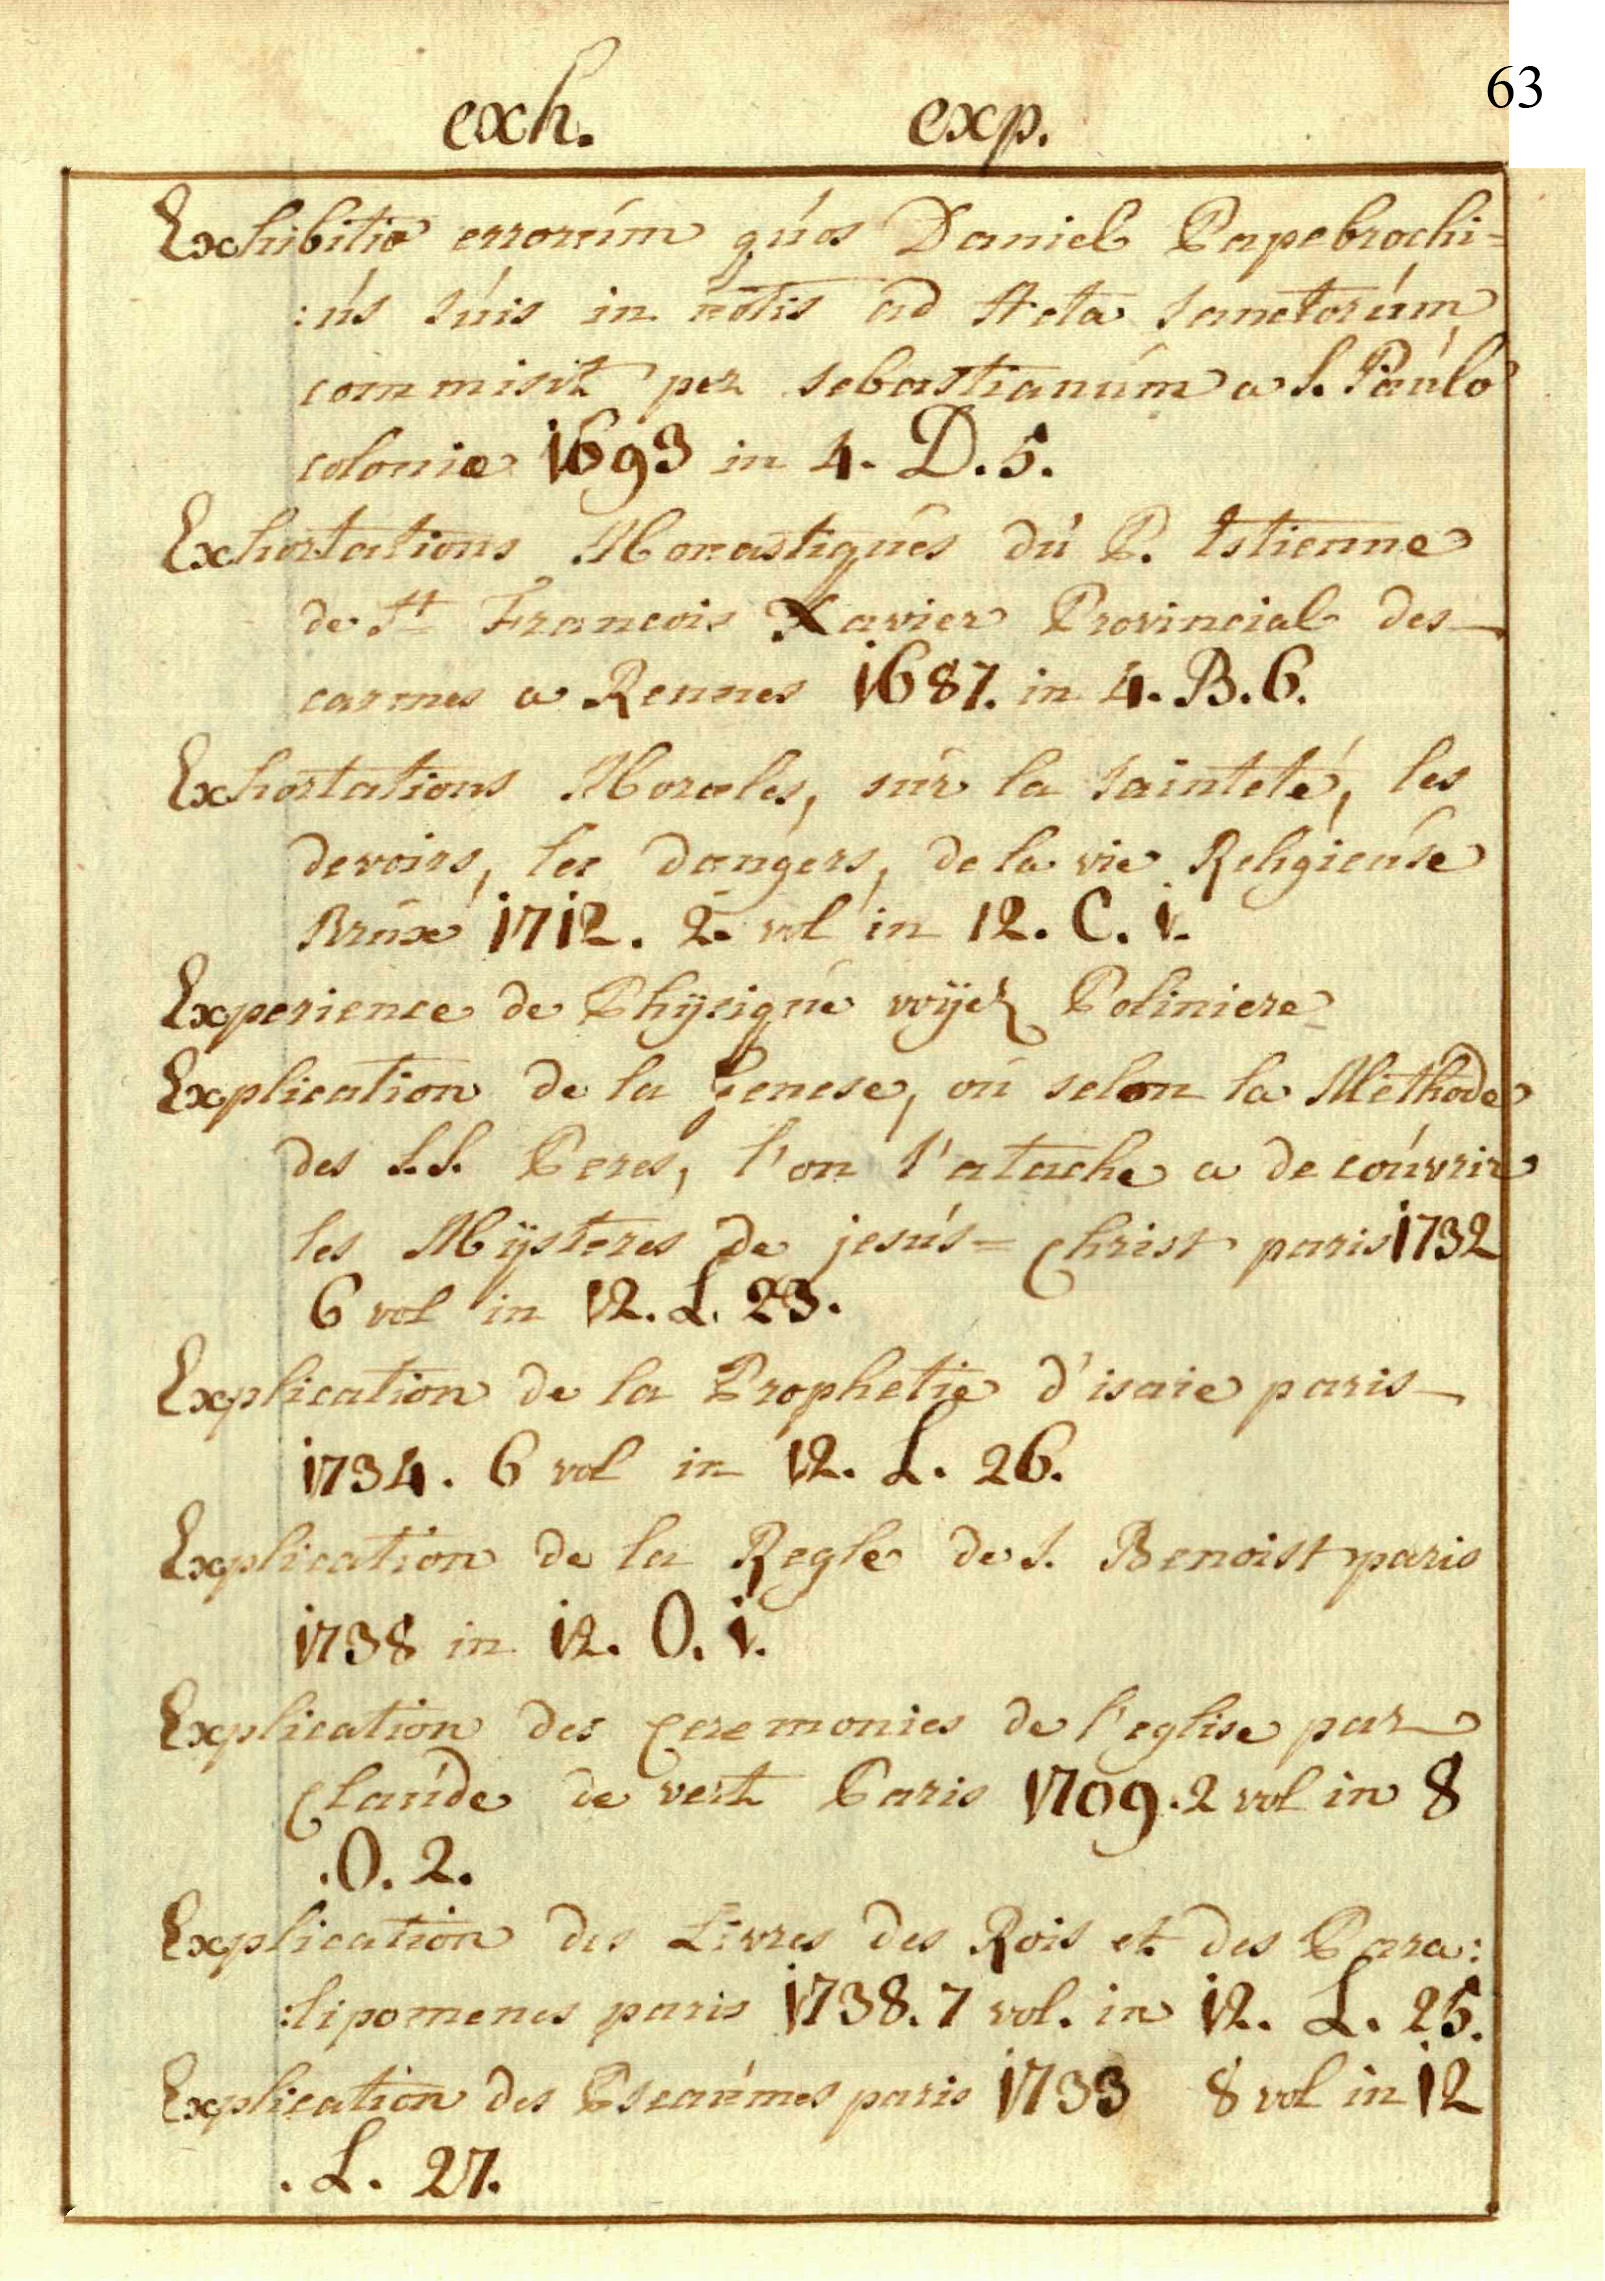 63
exh. exp.
Exhibitio errorum quos Daniel Papebrochi=
:us suis in notis ad Acta sanctorum
commisit per sebastianum a S. Paulo
coloniæ 1693 in 4. D. 5.
Exhortations Monastiques du P. Estienne
de St Francois Xavier Provincial des
carmes a Rennes 1687. in 4. B. 6.
Exhortations Morales, sur la sainteté, les
devoirs, les dangers, de la vie Religieuse
Brux 1712. 2. vol in 12. C. i.
Experience de Phÿsique voÿez Poliniere
Explication de la Genese, ou selon la Methode
des S.S. Peres, l'on s'atache a decouvrir
les Mÿsteres de jesus=Christ paris 1732
6 vol in 12. L. 23.
Explication de la Prophetie d'isaie paris
1734. 6 vol in 12. L. 26.
Explication de la Regle de S. Benoist paris
1738 in 12. O. i.
Explication des Ceremonies de l'eglise par
Claude de vert Paris 1709. 2 vol in 8
.O. 2.
Explication des Livres des Rois et des Para:
:lipomenes paris 1738. 7 vol. in 12. L. 25.
Explication des Pseaumes paris 1733 8 vol in 12
. L. 27.